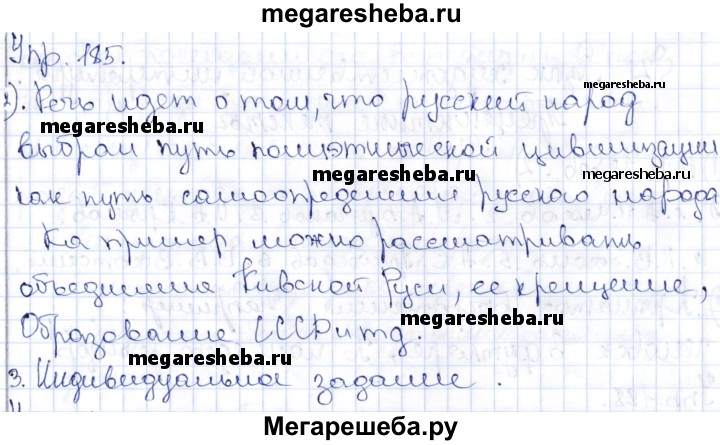 megaresheba.ru
Упр. 185.
2). Речь идет о том, что русский народ
megaresheba.ru
megaresheba.ru
выбрал путь полиэтнической цивилизации
megaresheba.ru
megaresheba.ru
как путь самоопределения русского народа
На пример можно рассматривать
megaresheba.ru
объединения Кивской Руси, ее крещение,
megaresheba.ru
Образование СССР и тд.
megaresheba.ru
3. Индивидуальное задание.
Мегарешеба.ру